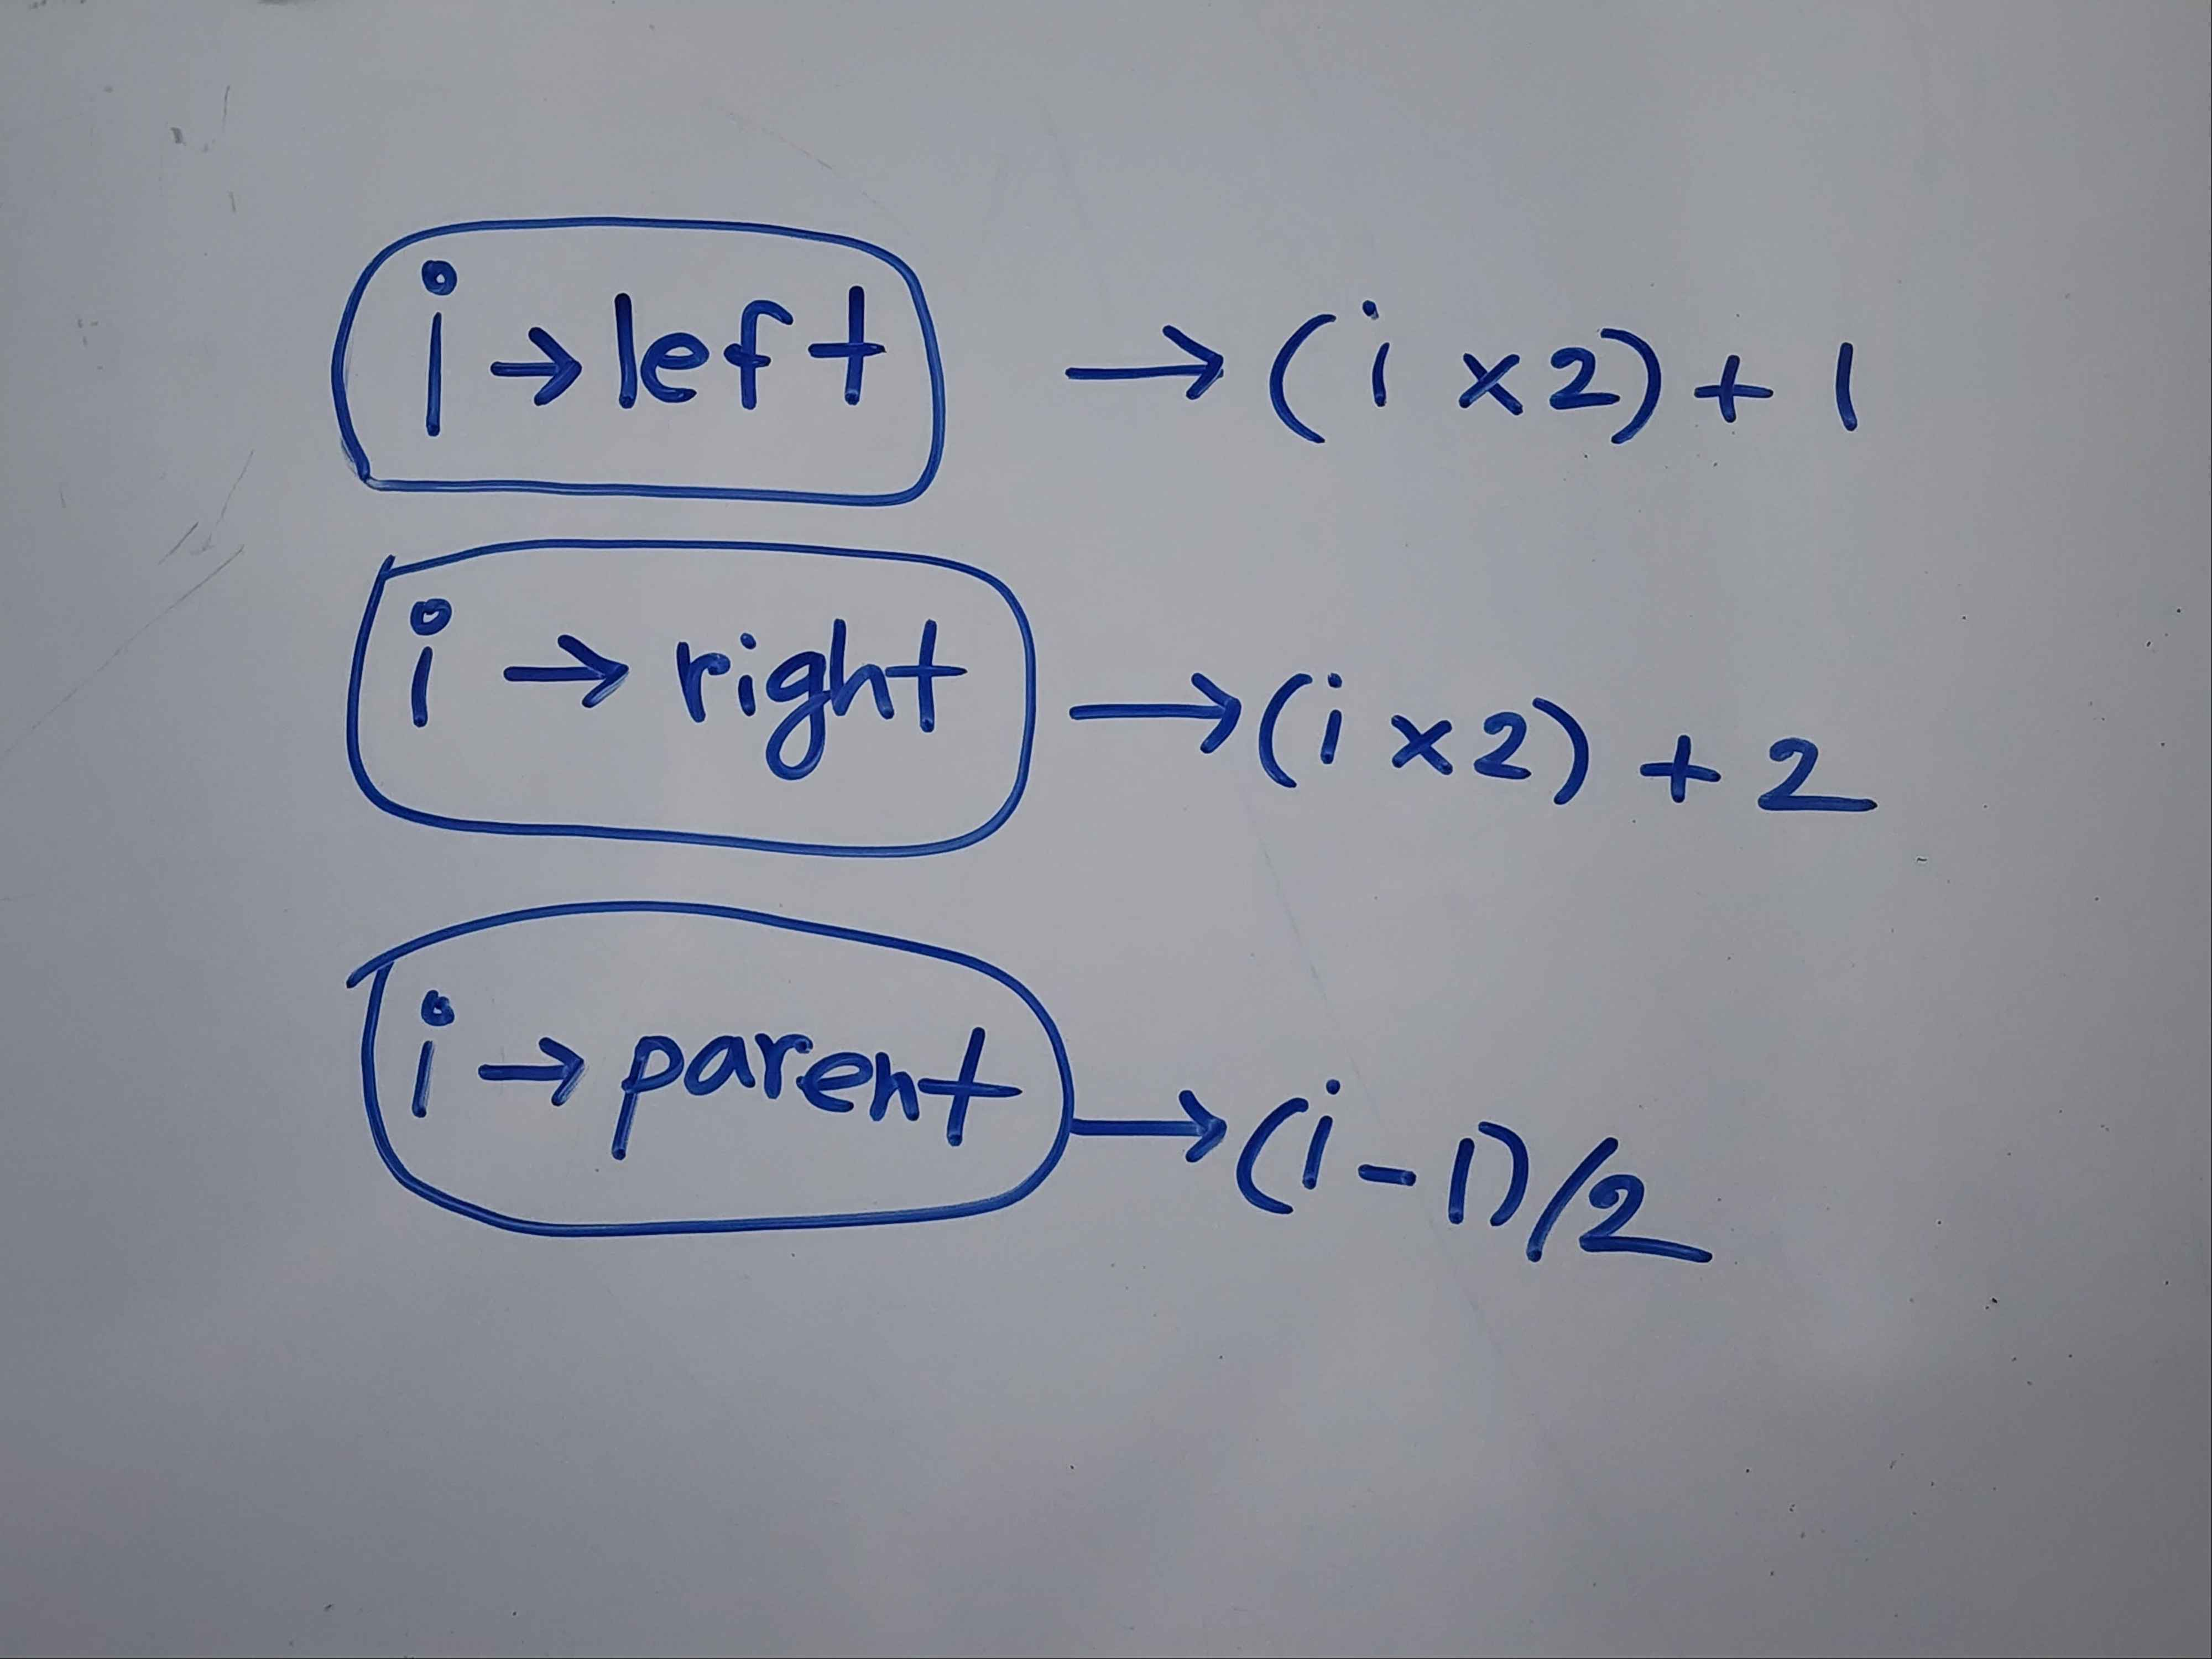 i → left → (i x 2) + 1
i → right → (i x 2) + 2
i → parent → (i - 1)/2